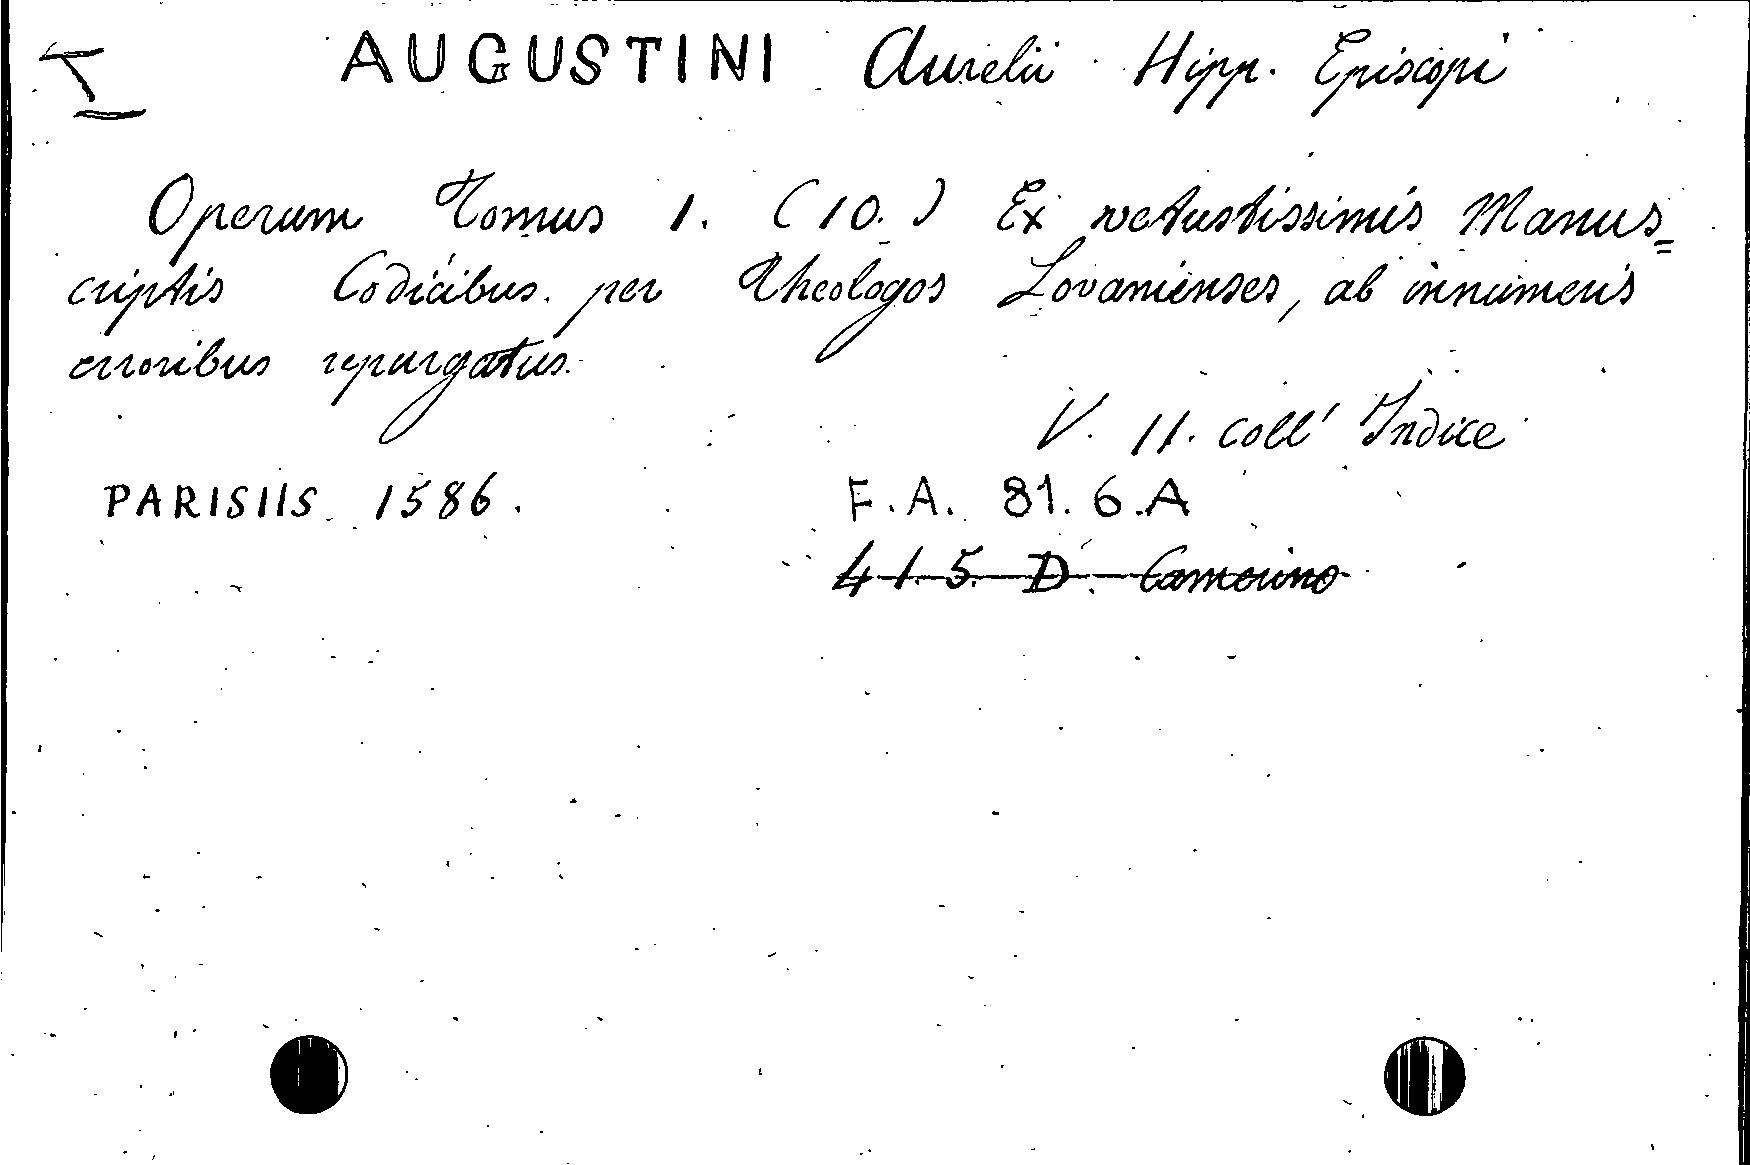 AUGUSTINI Aurelii Hipp. Episcopi
Operum Tomus 1. (10.) Ex vetustissimis Manus=
criptis Codicibus per Theologos Lovanienses, ab innumeris
erroribus repurgatus.
V. 11. coll' Indice
PARISIIS 1586.
F.A. 81. 6.A
41.5. D. Camerino